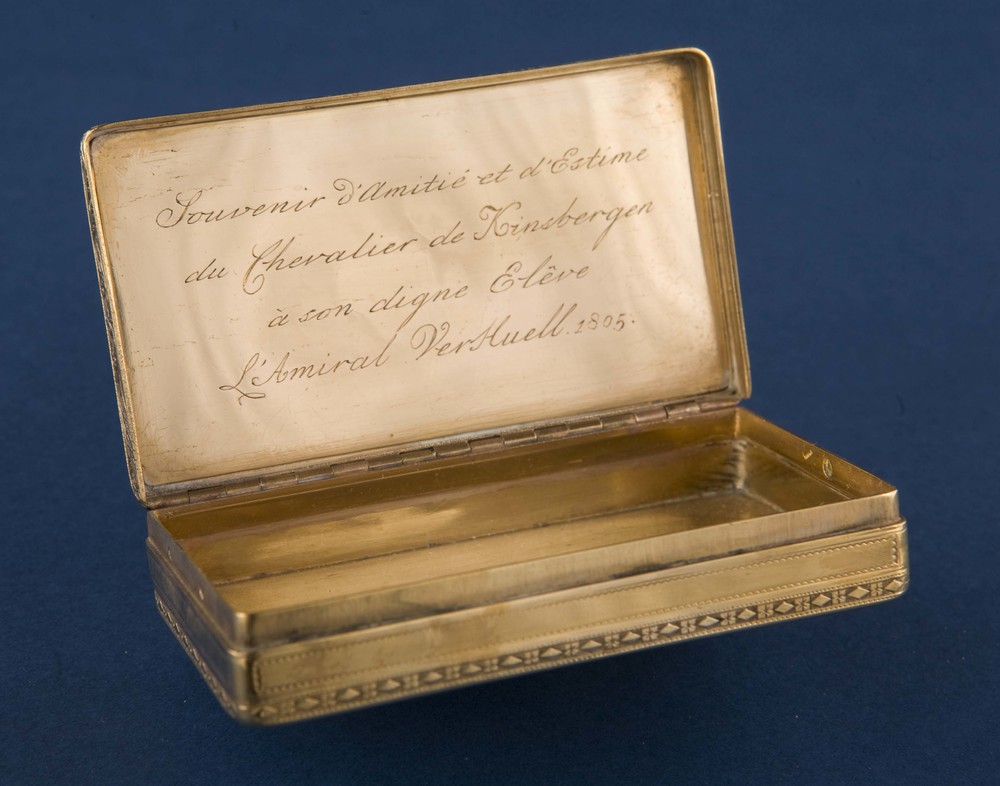 Souvenir d'Amitié et d'Estime
du Chevalier de Kinsbergen
à son digne Elêve
L'Amiral VerHuell. 1805.